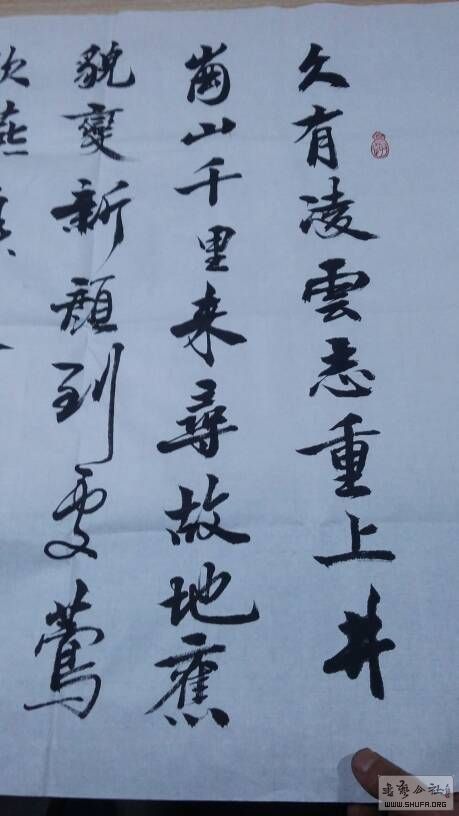 久有凌雲志重上井
崗山千里来尋故地舊
貌變新顔到處鶯
燕
书艺公社
WWW.SHUFA.ORG